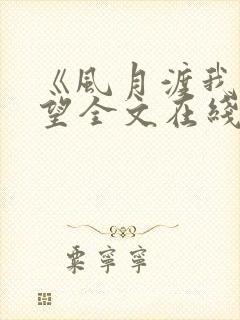 《風月渡我
望全文在綫
粟寧寧